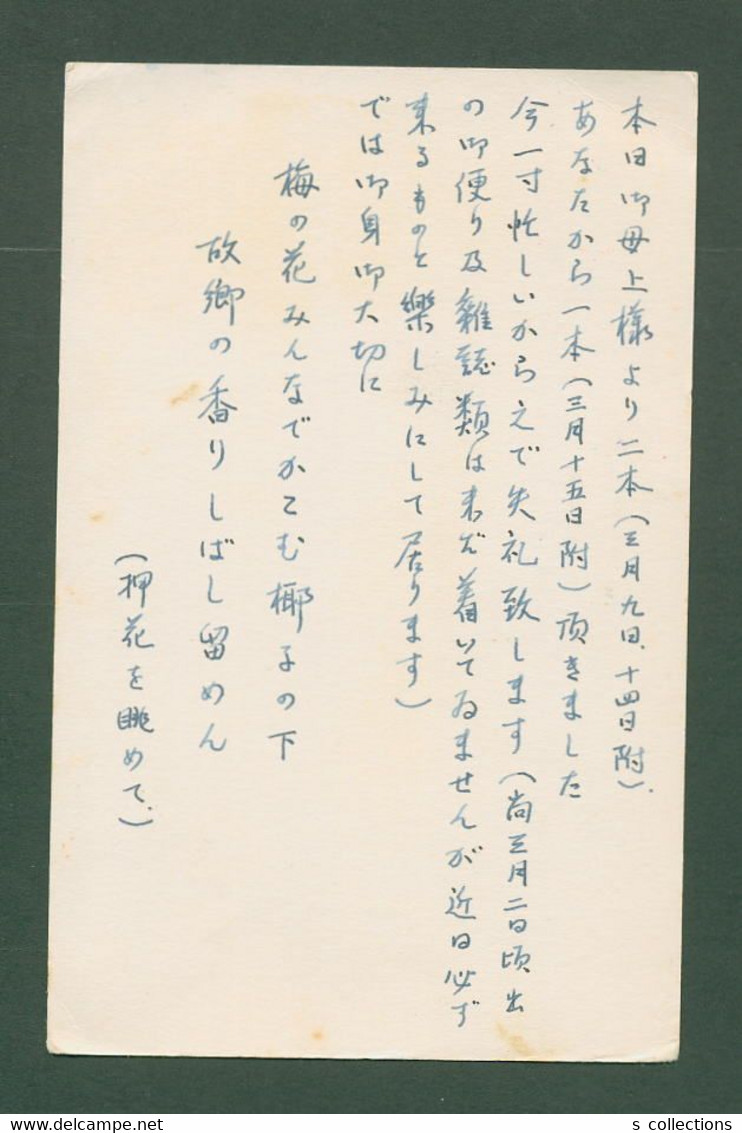 本日御母上様より二本(三月九日、十四日附)、
あなたから一本(三月十五日附)頂きました
今一寸忙しいから之で失礼致します(尚三月二日頃出
の御便り及雜誌類は未だ着いてゐませんが近日必ず
来るものと樂しみにして居ります)
では御身御大切に
梅の花みんなでかこむ椰子の下
故郷の香りしばし留めん
(押花を眺めて、)
s collections